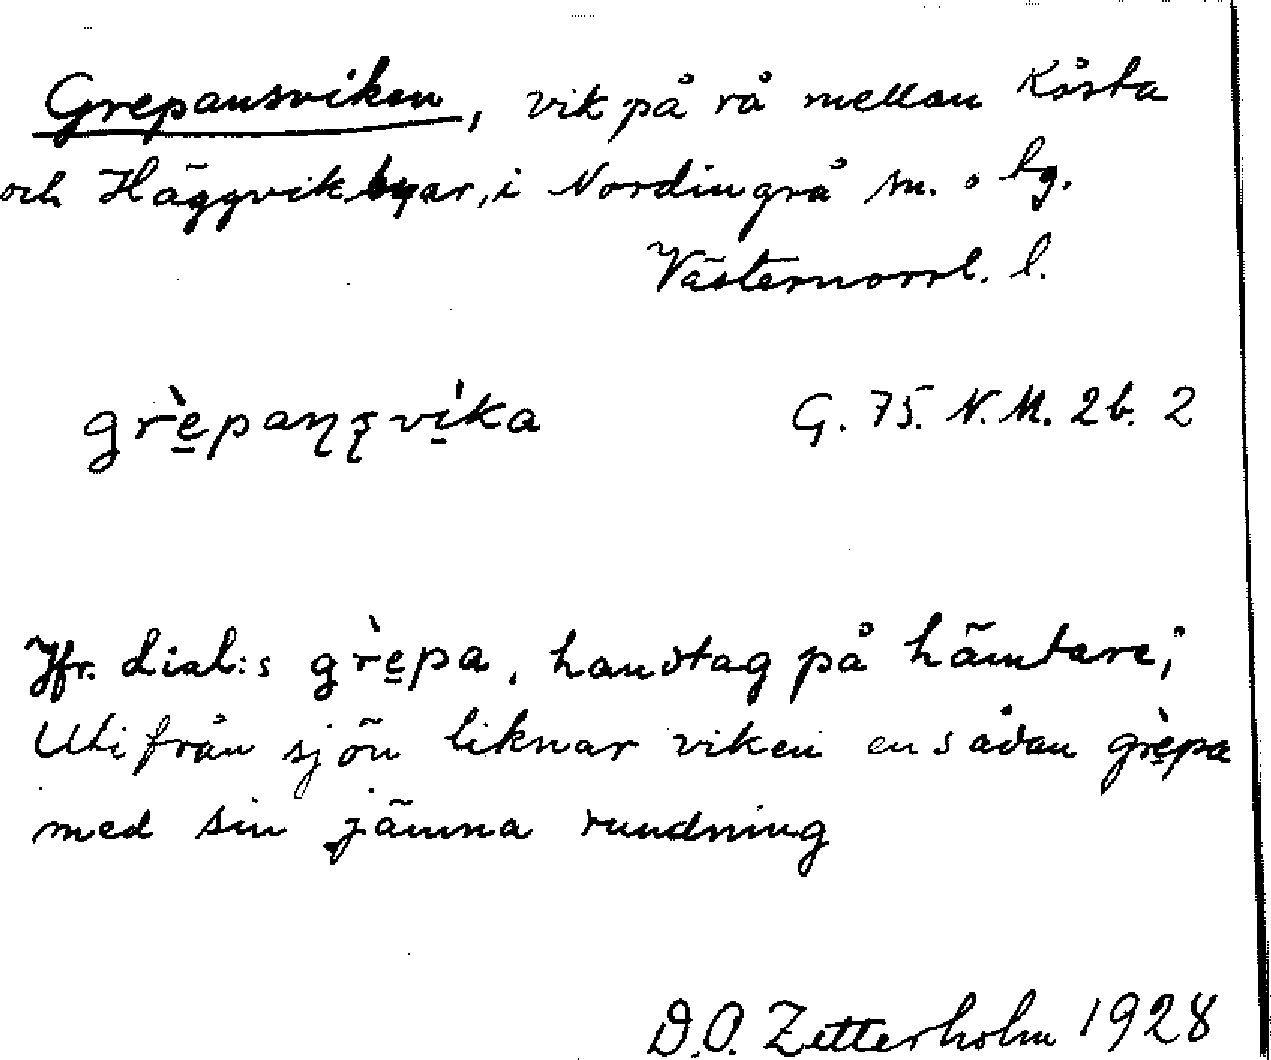 Grepansviken, vik på rå mellan Kåsta
och Häggvik byar, i Nordingrå sn. o tg.
Västernorrl. l.
grè̱paɳʂvi̱̍ka G. 75. N.M. 2b. 2
Jfr. dial:s grè̱pa, handtag på hämtare;
Utifrån sjön liknar viken en sådan grè̱pa
med sin jämna rundning
D.O. Zetterholm 1928